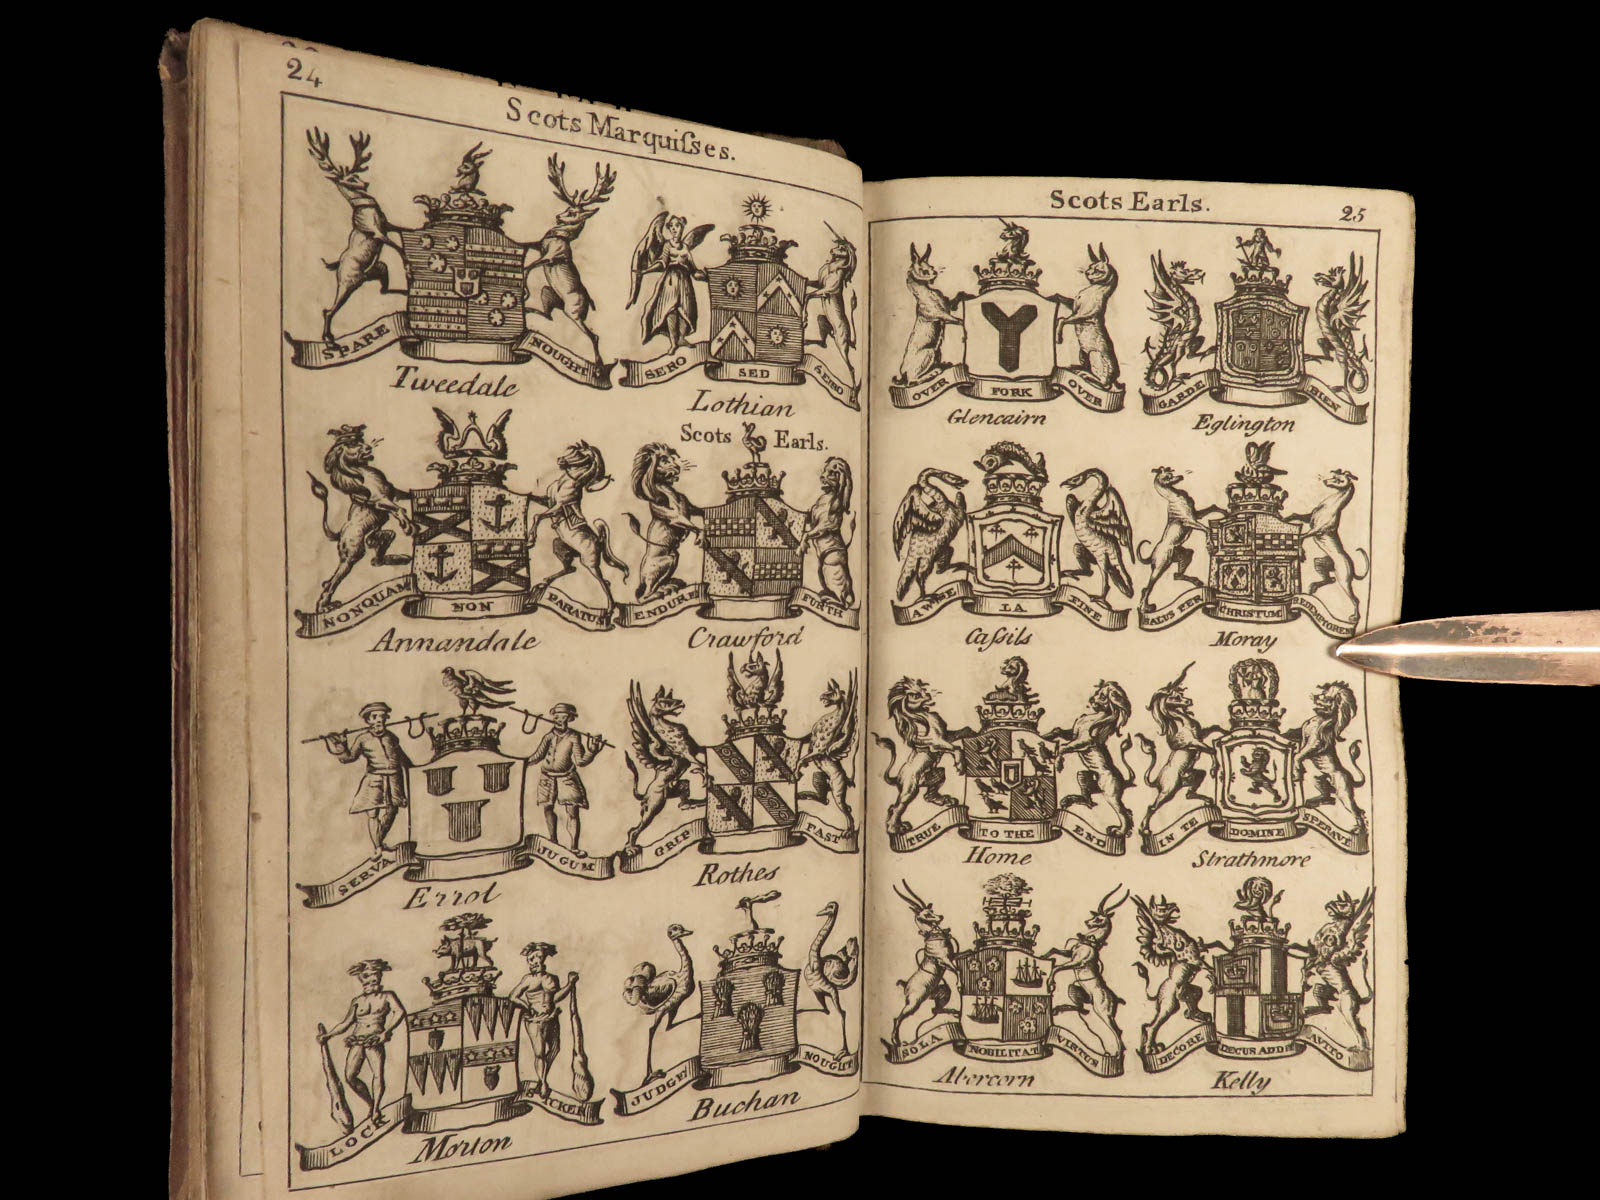 24
Scots Marquiſses.
SPARE NOUGHT
Tweedale
SERO SED SERIO
Lothian
NONQUAM NON PARATUS
Annandale
Scots Earls.
ENDURE FURTH
Crawford
SERVA JUGUM
Errol
GRIP FAST
Rothes
LOCK SICKER
Morton
JUDGE NOUGHT
Buchan
Scots Earls.
25
OVER FORK OVER
Glencairn
GARDE BIEN
Eglington
AWISE LA FINE
Caſsils
SALUS PER CHRISTUM REDEMPTOREM
Moray
TRUE TO THE END
Home
IN TE DOMINE SPERAVI
Strathmore
SOLA NOBILITAT VIRTUS
Abercorn
DECORE DECUS ADDIT AVITO
Kelly